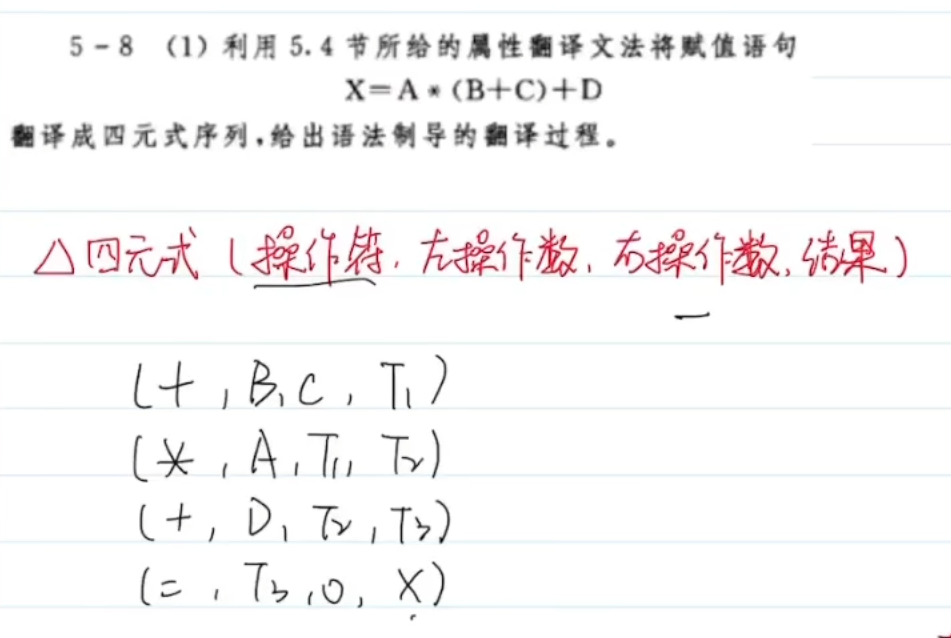 5-8 (1) 利用 5.4 节所给的属性翻译文法将赋值语句
X=A*(B+C)+D
翻译成四元式序列,给出语法制导的翻译过程。
△四元式(操作符,左操作数,右操作数,结果)
(+,B,C,T₁)
(*,A,T₁,T₂)
(+,D,T₂,T₃)
(=,T₃,0,X)